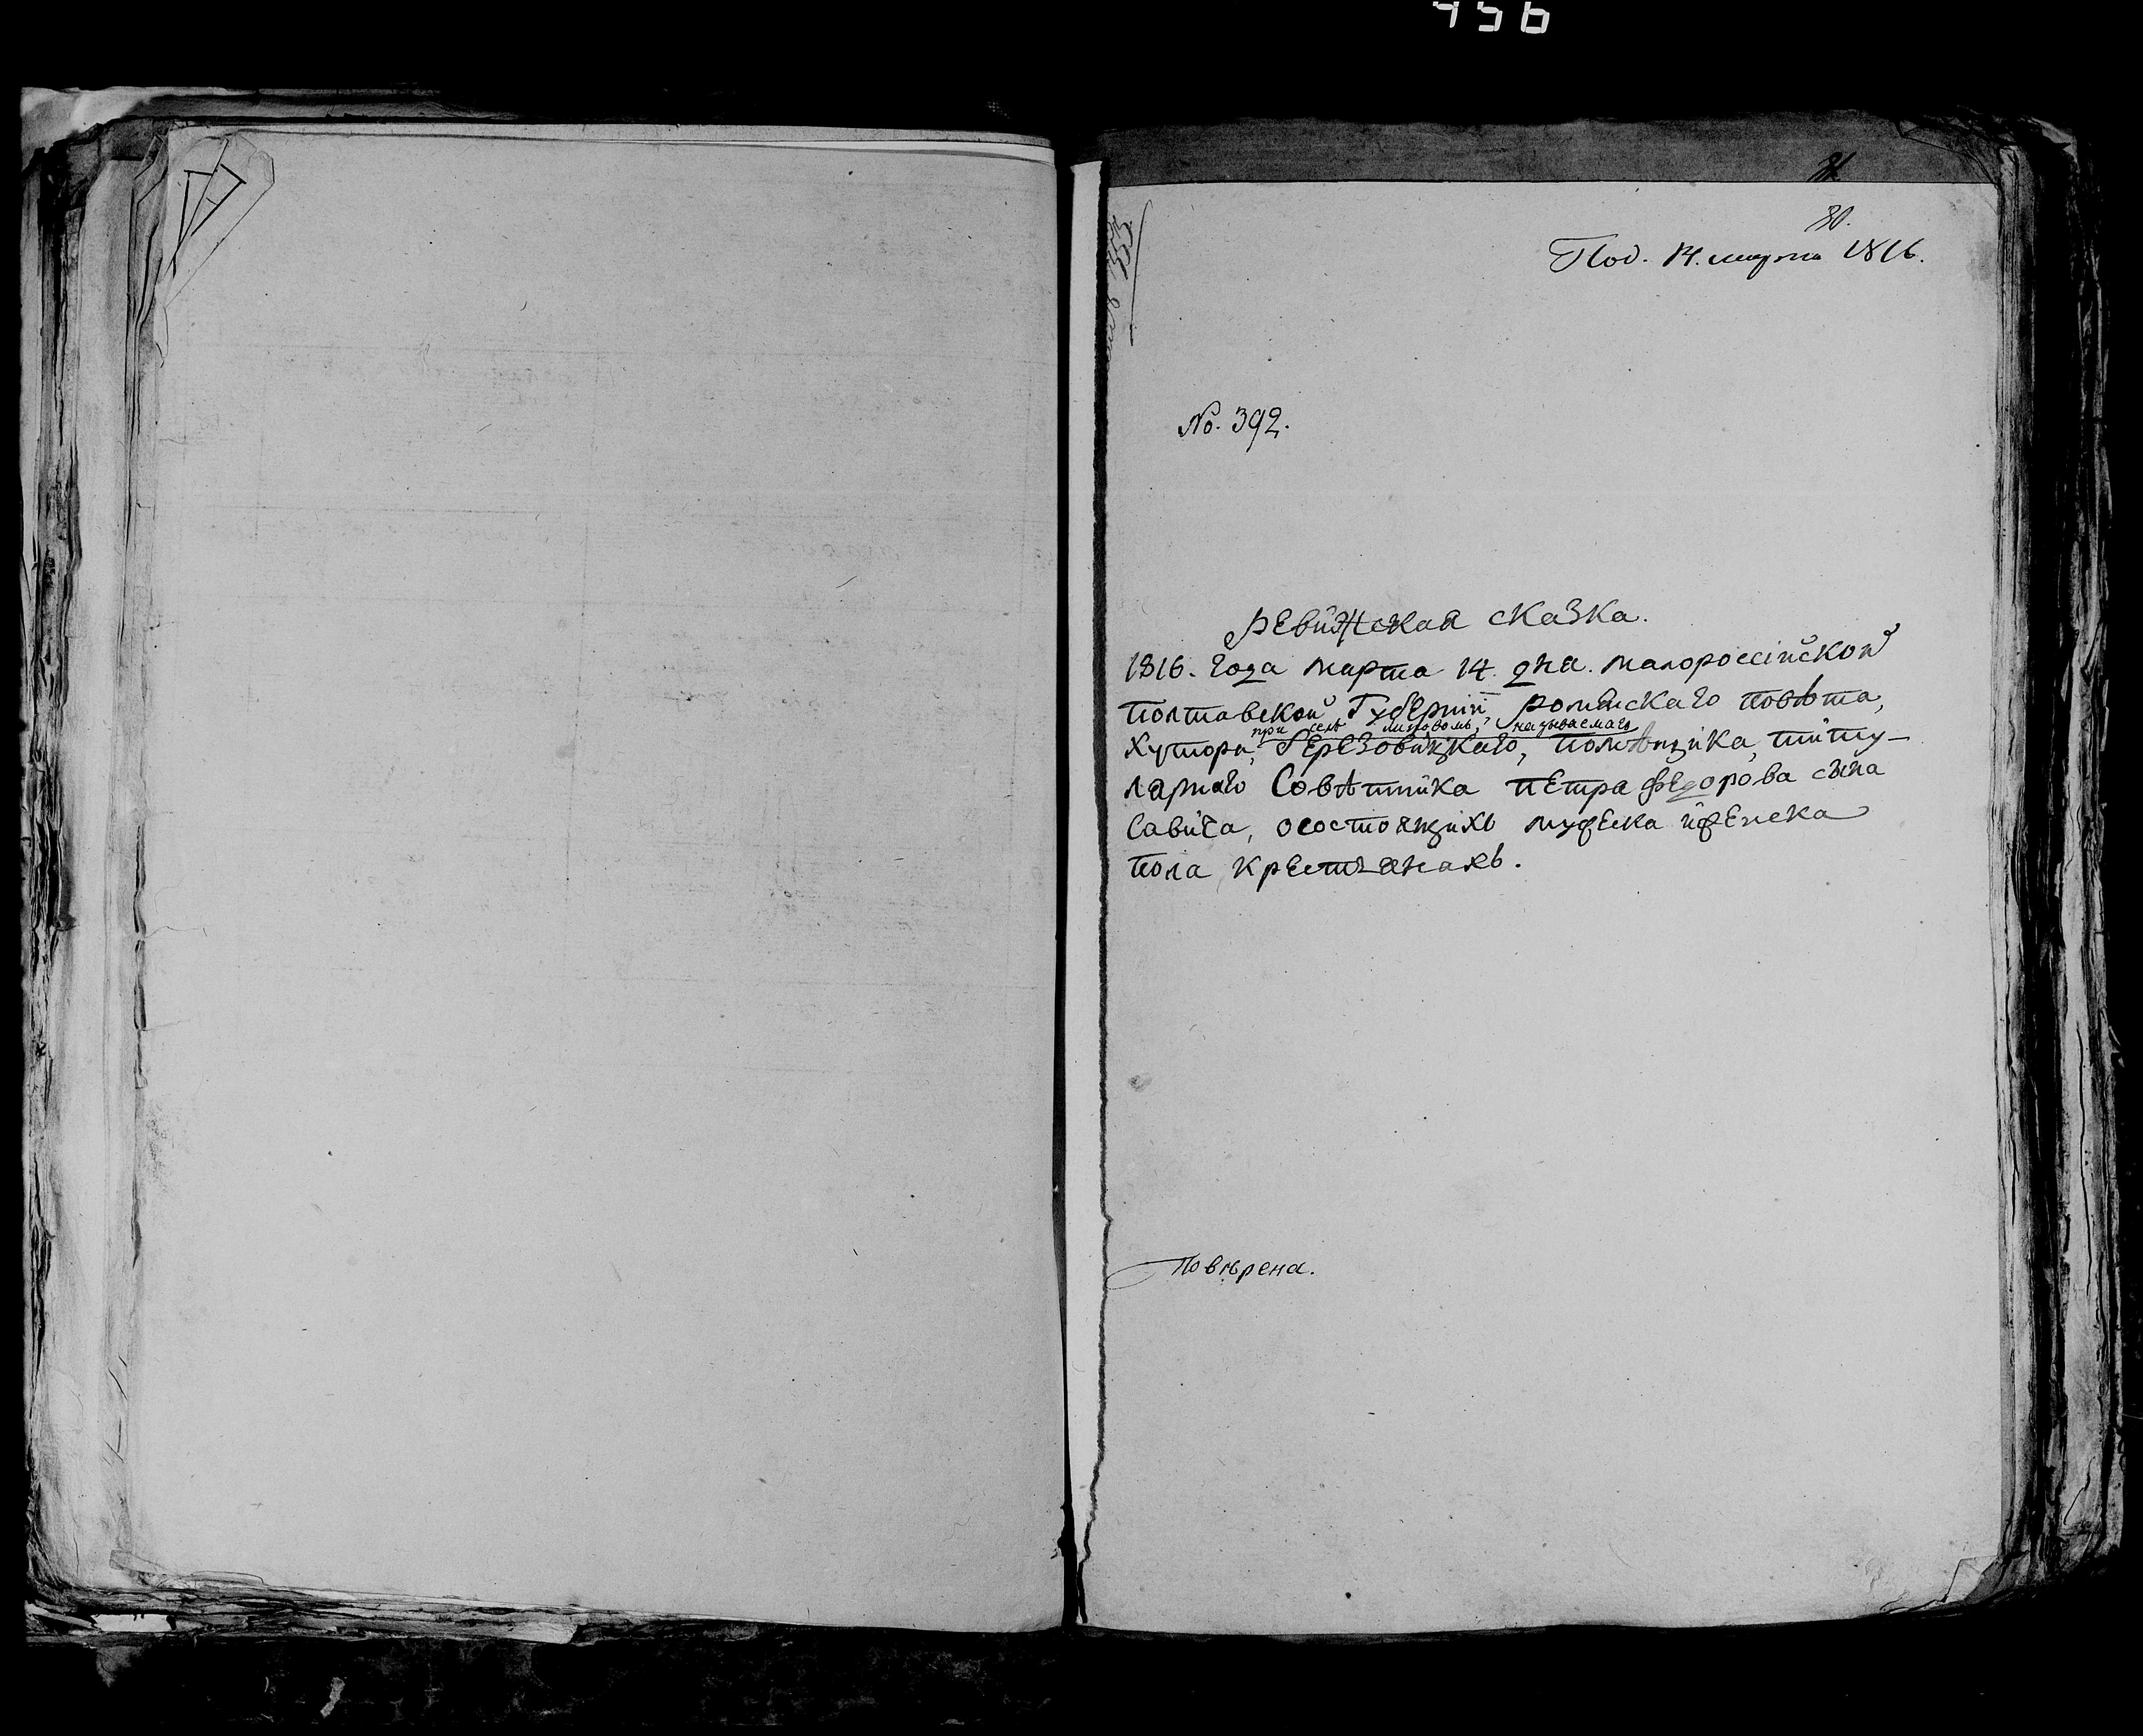 456
80.
Под. 14. марта 1816.
No. 392.
Ревизская сказка.
1816. года марта 14. дня. малороссійской
полтавской Губерніи роменскаго повѣта,
при селѣ называемаго
хутора, Березовицкаго, помѣщика, титу-
лярнаго Совѣтника петра федорова сына
Савича, осостоящихъ мужеска иженска
пола крестьянахъ.
Повѣрена.